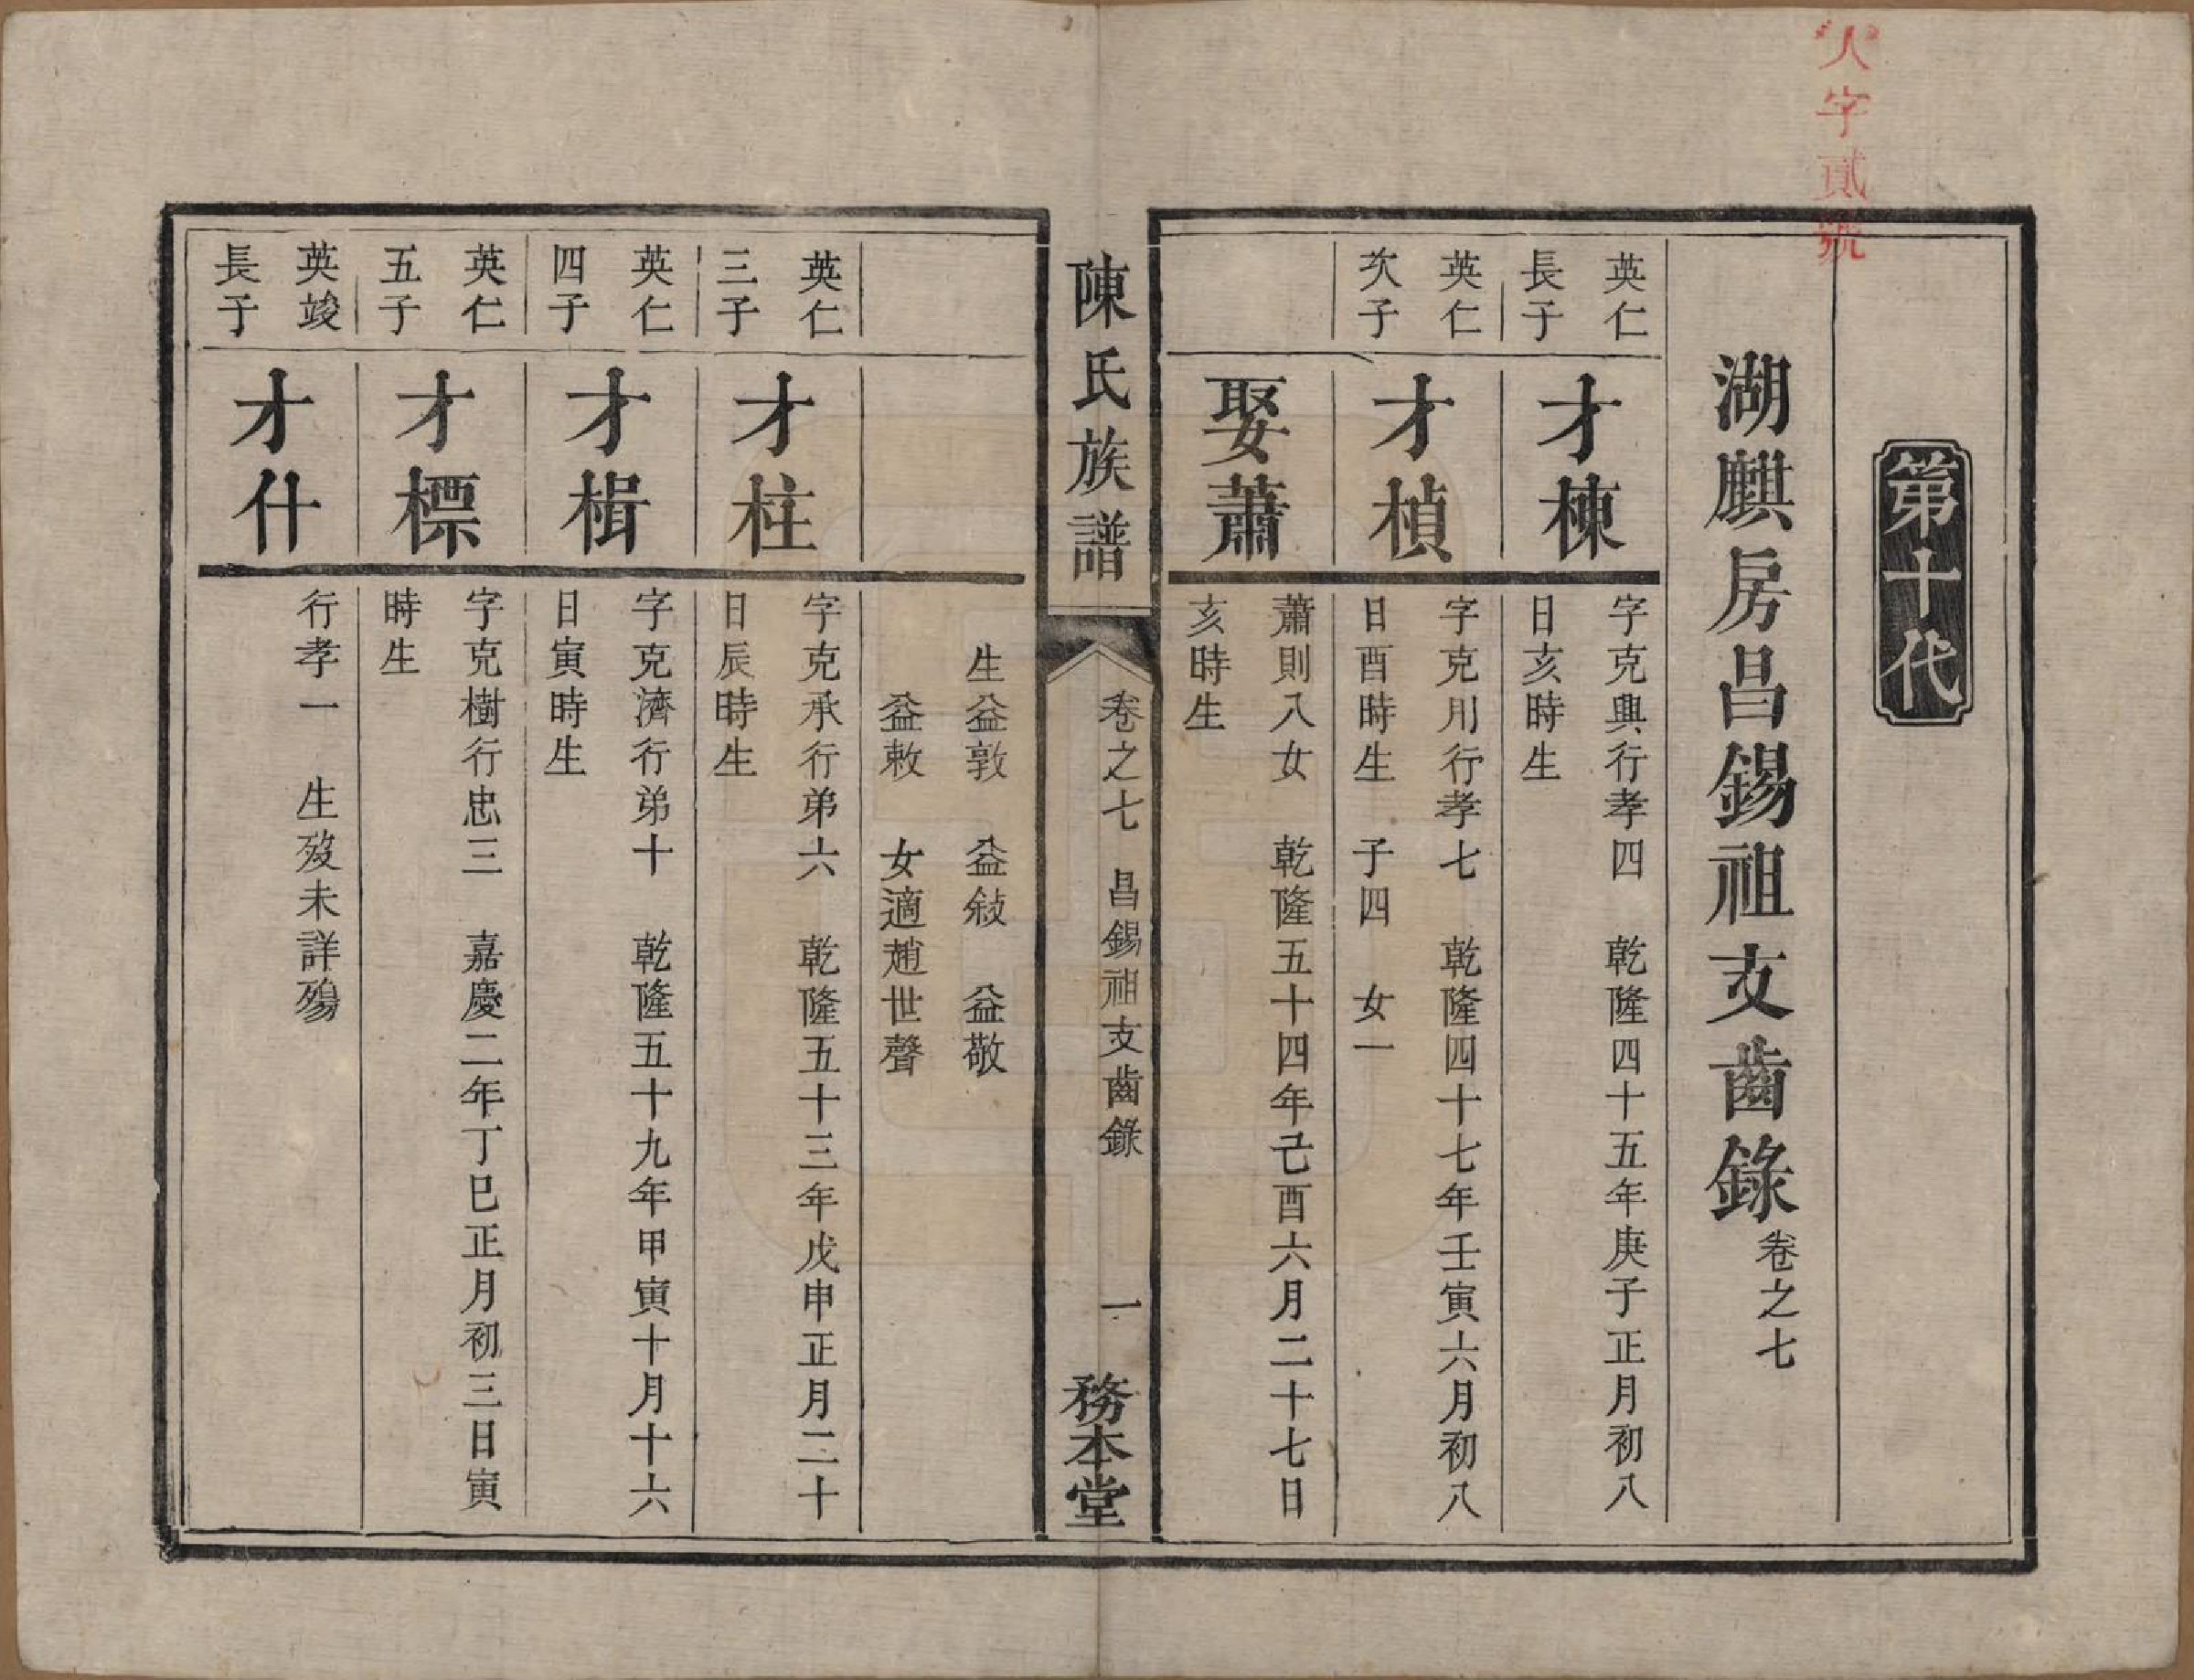 人字貳號
第十代
湖麒房昌錫祖支齒錄卷之七
英仁
長子
才棟
字克興行孝四　乾隆四十五年庚子正月初八
日亥時生
英仁
次子
才楨
字克用行孝七　乾隆四十七年壬寅六月初八
日酉時生　子四　女一
娶蕭
蕭則入女　乾隆五十四年己酉六月二十七日
亥時生
陳氏族譜
卷之七　昌錫祖支齒錄
一
務本堂
生益敦　益敍　益敬
益敕　女適趙世聲
英仁
三子
才柱
字克承行弟六　乾隆五十三年戊申正月二十
日辰時生
英仁
四子
才楫
字克濟行弟十　乾隆五十九年甲寅十月十六
日寅時生
英仁
五子
才標
字克樹行忠三　嘉慶二年丁巳正月初三日寅
時生
英竣
長子
才什
行孝一　生歿未詳殤